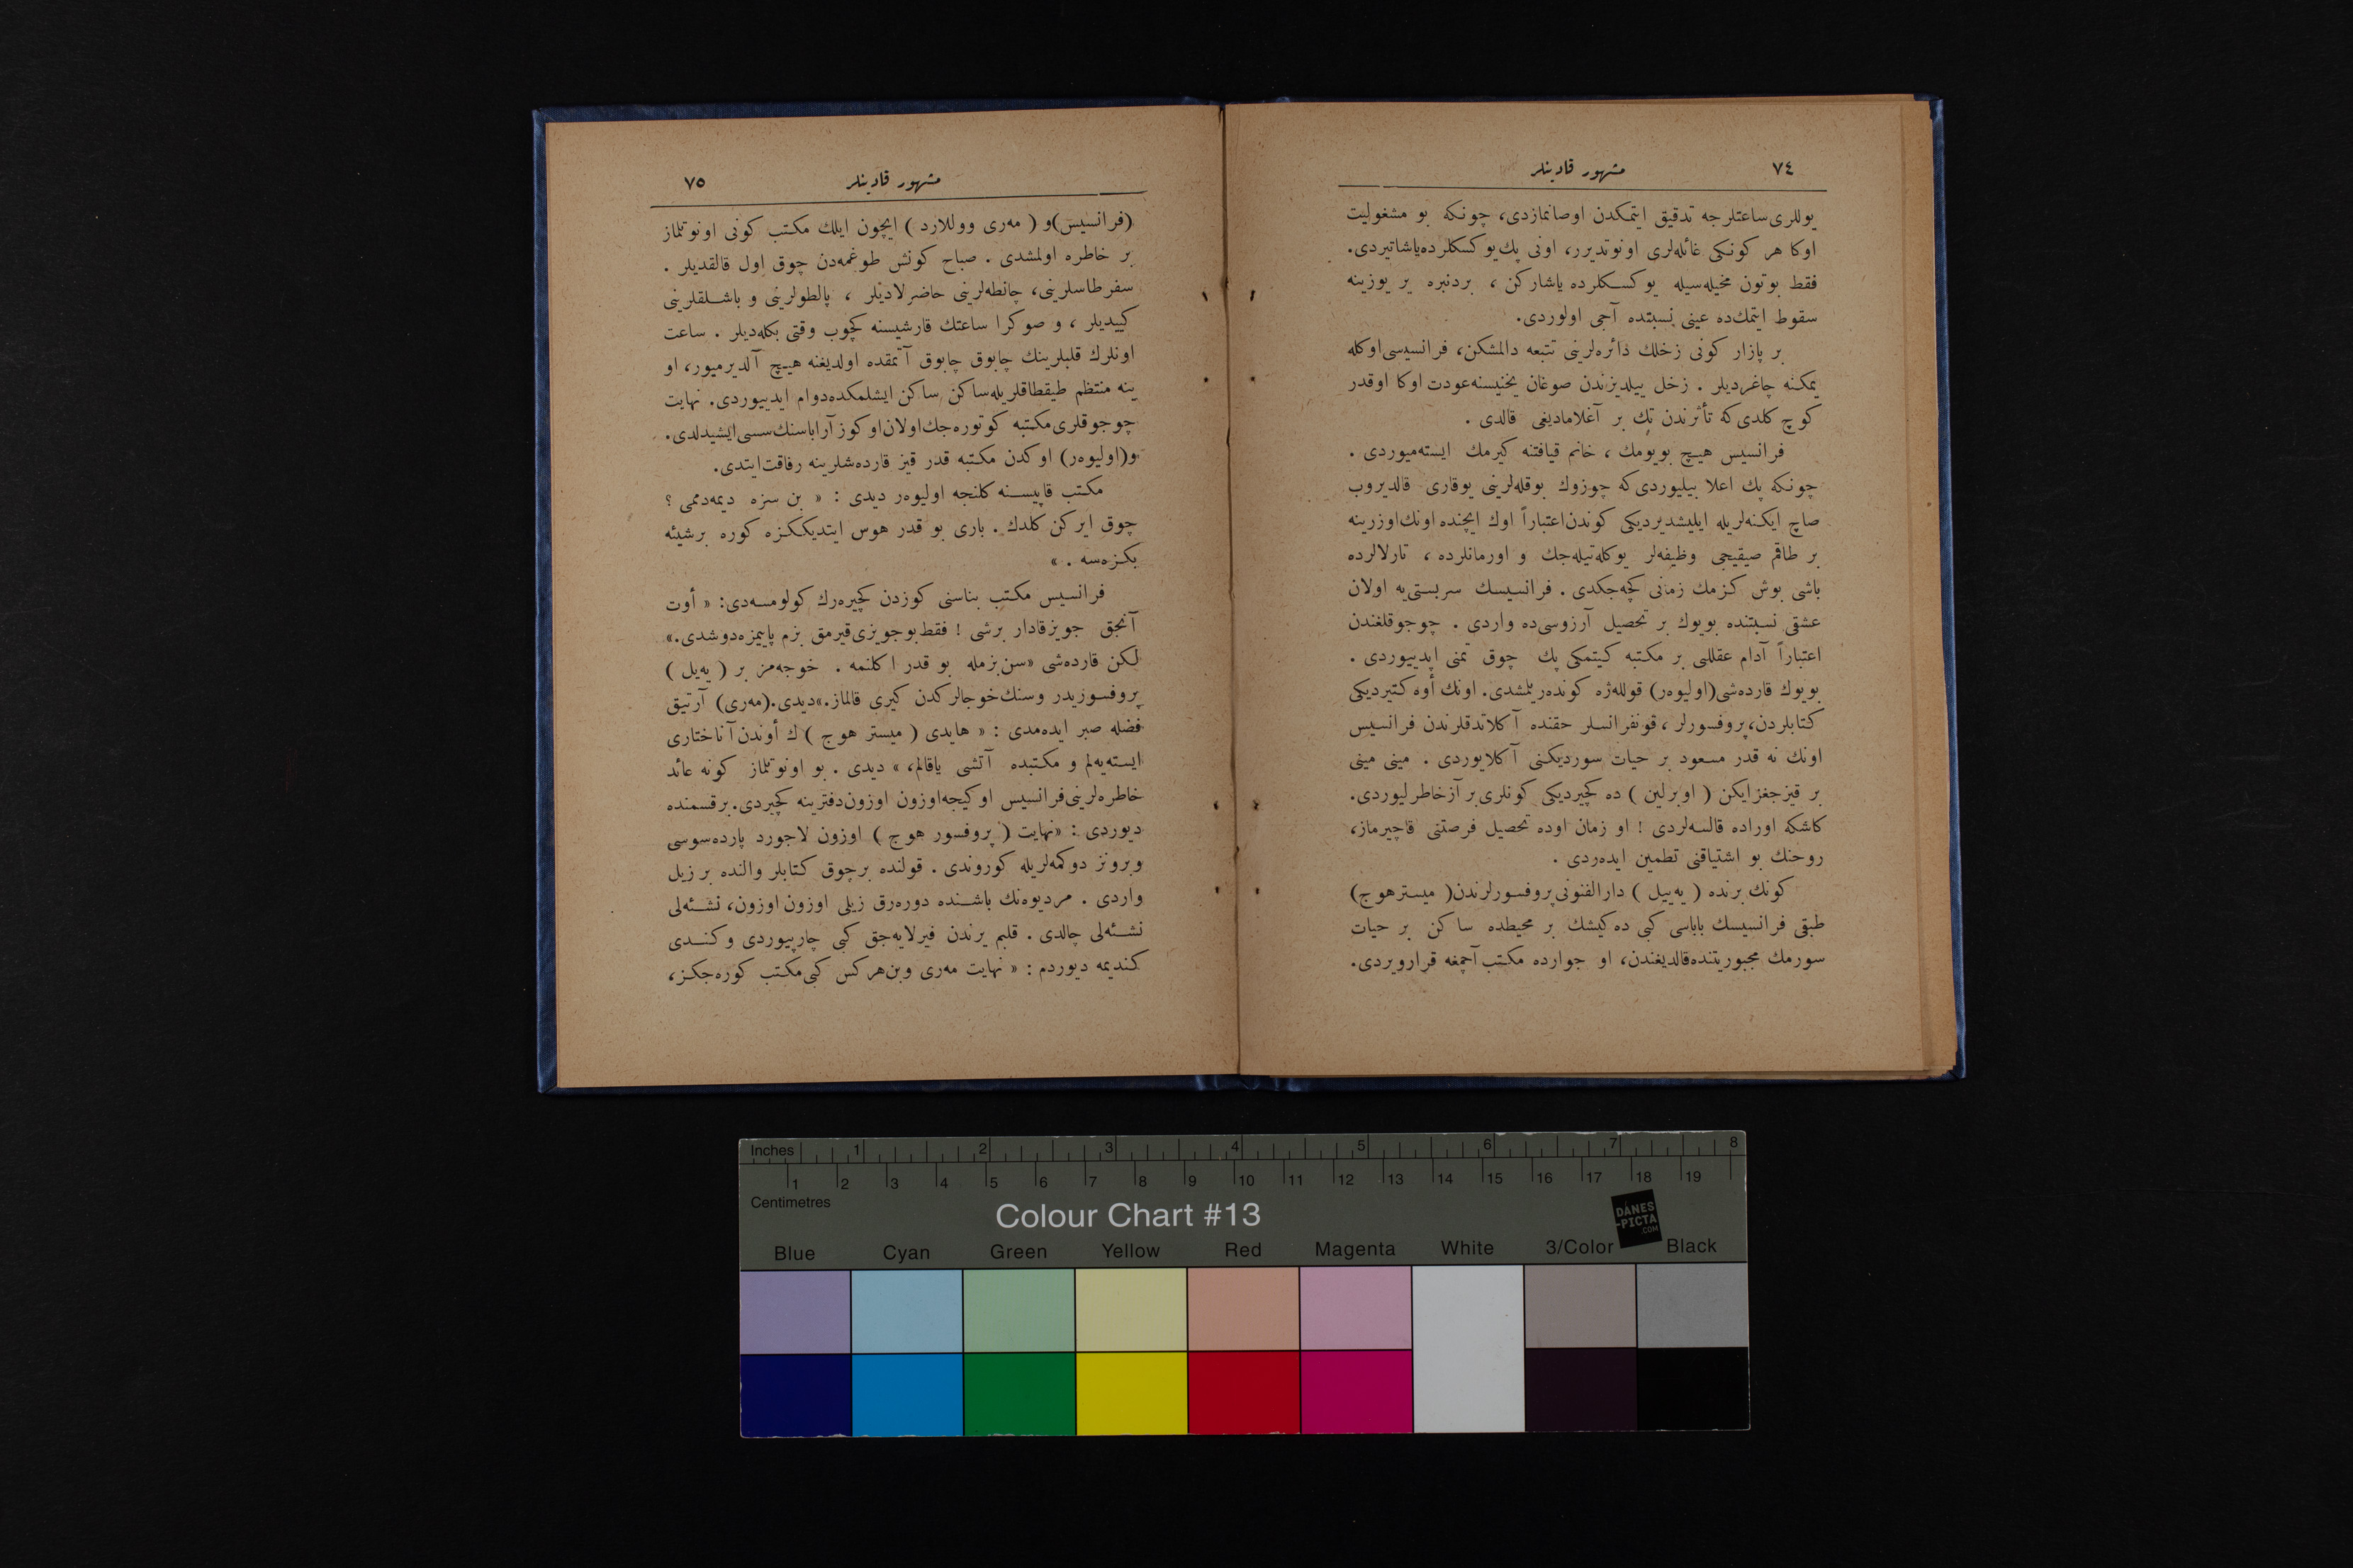 ٧٤
مشهور قادینلر
یوللری ساعتلرجه تدقیق ایتمکدن اوصانمازدی، چونکه بو مشغولیت
اوکا هر کونکی غائله‌لری اونوتدیرر، اونی پك یوکسکلرده یاشاتیردی.
فقط بوتون مخیله‌سیله یوکسکلرده یاشارکن ، بردنبره یر یوزینه
سقوط ایتمك‌ده عینی نسبتده آجی اولوردی.
بر پازار کونی زخلك دائره‌لرینی تتبعه دالمشکن، فرانسیسی اوکله
یمکنه چاغردیلر . زخل ییلدیزندن صوغان یخنیسنه عودت اوکا اوقدر
کوچ کلدی که تأثرندن تك بر آغلامادیغی قالدی .
فرانسیس هیچ بویومك ، خانم قیافتنه کیرمك ایسته‌میوردی .
چونکه پك اعلا بیلیوردی که چوزوك بوقله‌لرینی یوقاری قالدیروب
صاچ ایکنه‌لریله ایلیشدیردیکی کوندن اعتباراً اوك ایچنده اونك اوزرینه
بر طاقم صیقیجی وظیفه‌لر یوکله‌تیله‌جك و اورمانلرده ، تارلالرده
باشی بوش کزمك زمانی کچه‌جکدی . فرانسیسك سربستی‌یه اولان
عشقی نسبتنده بویوك بر تحصیل آرزوسی‌ده واردی . چوجوقلغندن
اعتباراً آدام عقللی بر مکتبه کیتمکی پك چوق تمنی ایدییوردی .
بویوك قارده‌شی (اولیوه‌ر) قولله‌ژه کونده‌ریلمشدی. اونك أوه کتیردیکی
کتابلردن، پروفسورلر ، قونفرانسلر حقنده آکلاتدقلرندن فرانسیس
اونك نه قدر مسعود بر حیات سوردیکنی آکلایوردی . مینی مینی
بر قیزجغز ایکن ( اوبرلین ) ده کچیردیکی کونلری بر آز خاطرلیوردی.
کاشکه اوراده قالسه‌لردی ! او زمان اوده تحصیل فرصتنی قاچیرماز،
روحنك بو اشتیاقنی تطمین ایده‌ردی .
کونك برنده ( یه‌ییل ) دارالفنونی پروفسورلرندن ( میستر هوج )
طبقی فرانسیسك باباسی کبی ده‌کیشك بر محیطده ساکن بر حیات
سورمك مجبوریتنده قالدیغندن، او جوارده مکتب آچمغه قرار ویردی.
مشهور قادینلر
٧٥
(فرانسیس) و ( مه‌ری ووللارد ) ایچون ایلك مکتب کونی اونوتلماز
بر خاطره اولمشدی . صباح کونش طوغمه‌دن چوق اول قالقدیلر .
سفر طاسلرینی، چانطه‌لرینی حاضرلادیلر ، پالطولرینی و باشلقلرینی
کییدیلر ، و صوکرا ساعتك قارشیسنه کچوب وقتی بکله‌دیلر . ساعت
اونلرك قلبلرینك چابوق چابوق آتمقده اولدیغنه هیچ آلدیرمیور، او
ینه منتظم طیقطاقلریله ساکن ساکن ایشلمکده دوام ایدییوردی. نهایت
چوجوقلری مکتبه کوتوره‌جك اولان اوکوز آراباسنك سسی ایشیدلدی.
و (اولیوه‌ر) اوکدن مکتبه قدر قیز قارده‌شلرینه رفاقت ایتدی.
مکتب قاپیسنه کلنجه اولیوه‌ر دیدی : « بن سزه دیمه‌دممی ؟
چوق ایرکن کلدك . باری بو قدر هوس ایتدیککزه کوره برشیئه
بکزه‌سه . »
فرانسیس مکتب بناسنی کوزدن کچیره‌رك کولومسه‌دی: « أوت
آنجق جویز قادار برشی ! فقط بو جویزی قیرمق بزم پاییمزه دوشدی.»
لکن قارده‌شی «سن بزمله بو قدر اکلنمه . خوجه‌مز بر ( یه‌یل )
پروفسوزیدر و سنك خوجالرکدن کیری قالماز.» دیدی. (مه‌ری) آرتیق
فضله صبر ایده‌مدی : « هایدی ( میستر هوج ) ك أوندن آناختاری
ایسته‌یه‌لم و مکتبده آتشی یاقالم، » دیدی . بو اونوتلماز کونه عائد
خاطره‌لرینی فرانسیس او کیجه اوزون اوزون دفترینه کچیردی. بر قسمنده
دیوردی : «نهایت ( پروفسور هوج ) اوزون لاجورد پارده‌سوسی
و برونز دوکمه‌لریله کوروندی . قولنده برچوق کتابلر و النده بر زیل
واردی . مردیوه‌نك باشنده دوره‌رق زیلی اوزون اوزون، نشئه‌لی
نشئه‌لی چالدی . قلبم یرندن فیرلایه‌جق کبی چارپیوردی و کندی
کندیمه دیوردم : « نهایت مه‌ری و بن هرکس کبی مکتب کوره‌جکز،
Inches 1 2 3 4 5 6 7 8
1 2 3 4 5 6 7 8 9 10 11 12 13 14 15 16 17 18 19
Centimetres
Colour Chart #13
DANES
-PICTA
.COM
Blue Cyan Green Yellow Red Magenta White 3/Color Black